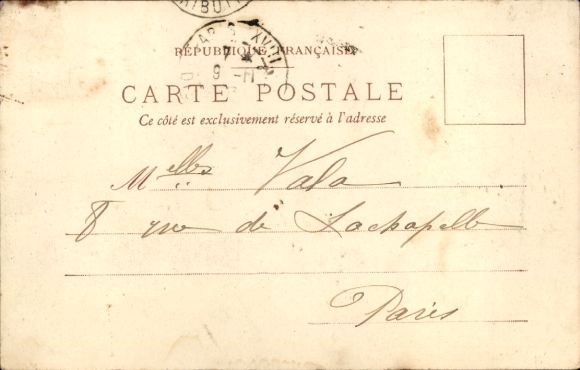 RIBU
PARIS XVIII
RÉPUBLIQUE FRANÇAISE
CARTE POSTALE
Ce côté est exclusivement réservé à l'adresse
Melles Vala
8 rue de Lachapelle
Paris